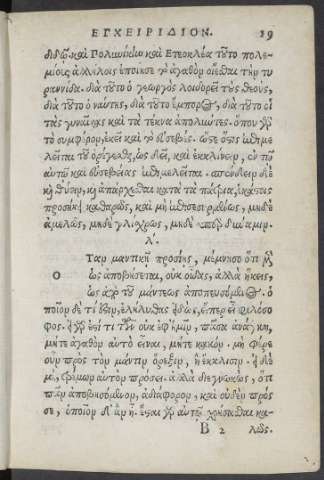 ΕΓΧΕΙΡΙΔΙΟΝ. 19
διδῶ. καὶ Πολυνείκην καὶ Ετεοκλέα τοῦτο πολε-
μίους ἀλλήλοις ἐποίησε τὸ ἀγαθὸν οἴεσθαι τὴν τυ
ραννίδα. διὰ τοῦτο ὁ γεωργὸς λοιδορεῖ τοὺς θεούς,
διὰ τοῦτο ὁ ναύτης, διὰ τοῦτο ἔμπορος, διὰ τοῦτο οἱ
τὰς γυναῖκας καὶ τὰ τέκνα ἀπολύντες. ὅπου γὰρ
τὸ συμφέρον, ἐκεῖ καὶ τὸ εὐσεβές. ὥστε ὅστις ἐπιμε
λεῖται τοῦ ὀρέγεσθαι, ὡς δεῖ, καὶ ἐκκλίνειν, ἐν τῷ
αὐτῷ καὶ εὐσεβείας ἐπιμελεῖται. σπένδειν δὲ
καὶ θύειν, καὶ ἀπάρχεσθαι κατὰ τὰ πάτρια, ἑκάστοις
προσήκει καθαρῶς, καὶ μὴ ἐπισεσυρμένως, μηδὲ
ἀμελῶς, μηδὲ γλίσχρως, μηδὲ ὑπὲρ δύναμιν.
λ.
Οταν μαντικῇ προσίῃς, μέμνησο ὅτι τί
ὡς ἀποβήσεται, οὐκ οἶδας, ἀλλὰ ἥκεις,
ὡς παρὰ τοῦ μάντεως ἀποπευσόμενος. ὁ
ποῖον δέ τι ἐστὶν, ἐλήλυθας εἰδὼς, εἴπερ εἶ φιλόσο
φος. εἰ γάρ ἐστί τι τῶν οὐκ ἐφ' ἡμῖν, πᾶσα ἀνάγκη,
μήτε ἀγαθὸν αὐτὸ εἶναι, μήτε κακόν. μὴ φέρε
οὖν πρὸς τὸν μάντιν ὄρεξιν, ἢ ἔκκλισιν. εἰ δὲ
μή, τρέμων αὐτὸν πρόσει. ἀλλὰ διεγνωκὼς, ὅτι
πᾶν ἀποβησόμενον, ἀδιάφορον, καὶ οὐδὲν πρός
σε, ὁποῖον δ' ἂν ᾖ. ἔσται γὰρ αὐτῷ χρήσασθαι κα-
B 2 λῶς.